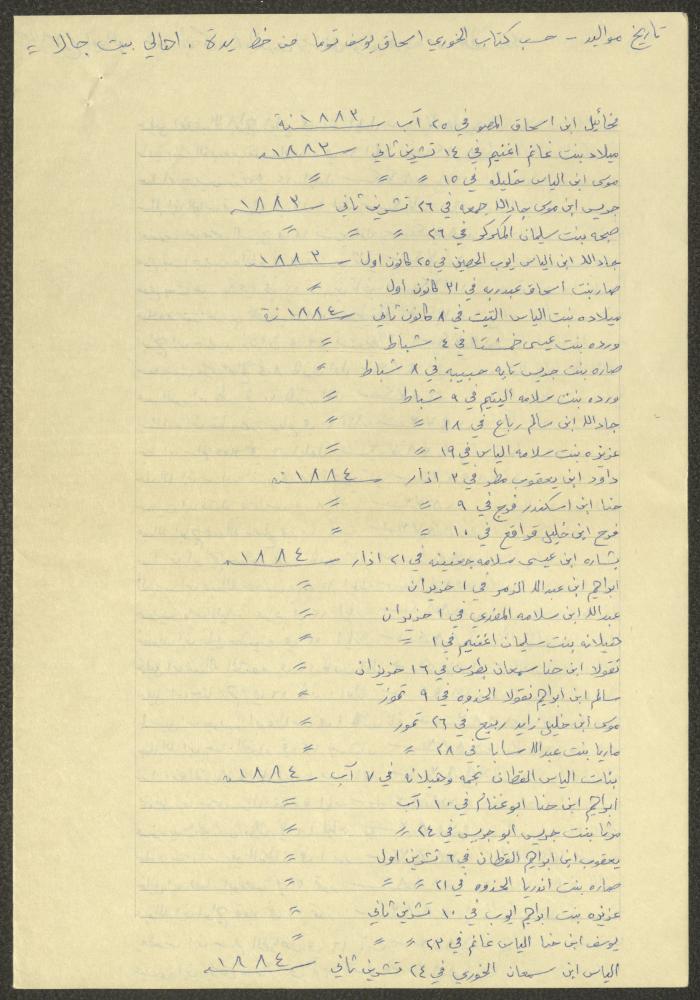 تاريخ مواليد - حسب كتاب الخوري اسحاق يوسف توما من خط يده . اهالي بيت جالا =
مخائيل ابن اسحاق المصو في ٢٥ آب سنة ١٨٨٣
ميلاد بنت غانم اغنيم في ١٤ تشرين ثاني سنة ١٨٨٣
موسى ابن الياس خليله في ١٥ = = =
جريس ابن موسى جادالله جمعه في ٢٦ تشرين ثاني سنة ١٨٨٣
صبحه بنت سليمان المكركر في ٢٦ = = =
جادالله ابن الياس ايوب الحصين في ٢٥ كانون اول سنة ١٨٨٣
صاربنت اسحاق عبدربه في ٣١ كانون اول =
ميلاده بنت الياس التيت في ٨ كانون ثاني سنة ١٨٨٤
ورده بنت عيسى خمشتا في ٤ شباط =
صاره بنت جريس تايه حبيبه في ٨ شباط =
ورده بنت سلامه اليتيم في ٩ شباط =
جادالله ابن سالم رباع في ١٨ = =
عزيزه بنت سلامه الياس في ١٩ = =
داود ابن يعقوب مطر في ٣ اذار سنة ١٨٨٤
حنا ابن اسكندر فرج في ٩ = =
فرح ابن خليل قواقع في ١٠ = =
بشاره ابن عيسى سلامه جغينيه في ٢١ اذار سنة ١٨٨٤
ابراهيم ابن عبدالله الزمر في ١ حزيران =
عبدالله ابن سلامه المغزي في ١ حزيران =
هيلانه بنت سليمان اغنيم في ١ = =
نقولا ابن حنا سمعان بطرس في ١٦ حزيران =
سالم ابن ابراهيم نقولا الحذوه في ٩ تموز =
موسى ابن خليل زايد ربيع في ٢٦ تموز =
ماريا بنت عبدالله سابا في ٢٨ = =
بنات الياس القطان نجمه وهيلانه في ٧ آب سنة ١٨٨٤
ابراهيم ابن حنا ابوغنام في ١٠ آب =
مرتا بنت جريس ابو جريس في ٢٤ = =
يعقوب ابن ابراهيم القطان في ٦ تشرين اول =
صاره بنت اندريا الحذوه في ٢١ = = =
عزيزه بنت ابراهيم ايوب في ١٠ تشرين ثاني =
يوسف ابن حنا الياس غانم في ٢٣ = = =
الياس ابن سمعان الخوري في ٢٤ تشرين ثاني سنة ١٨٨٤